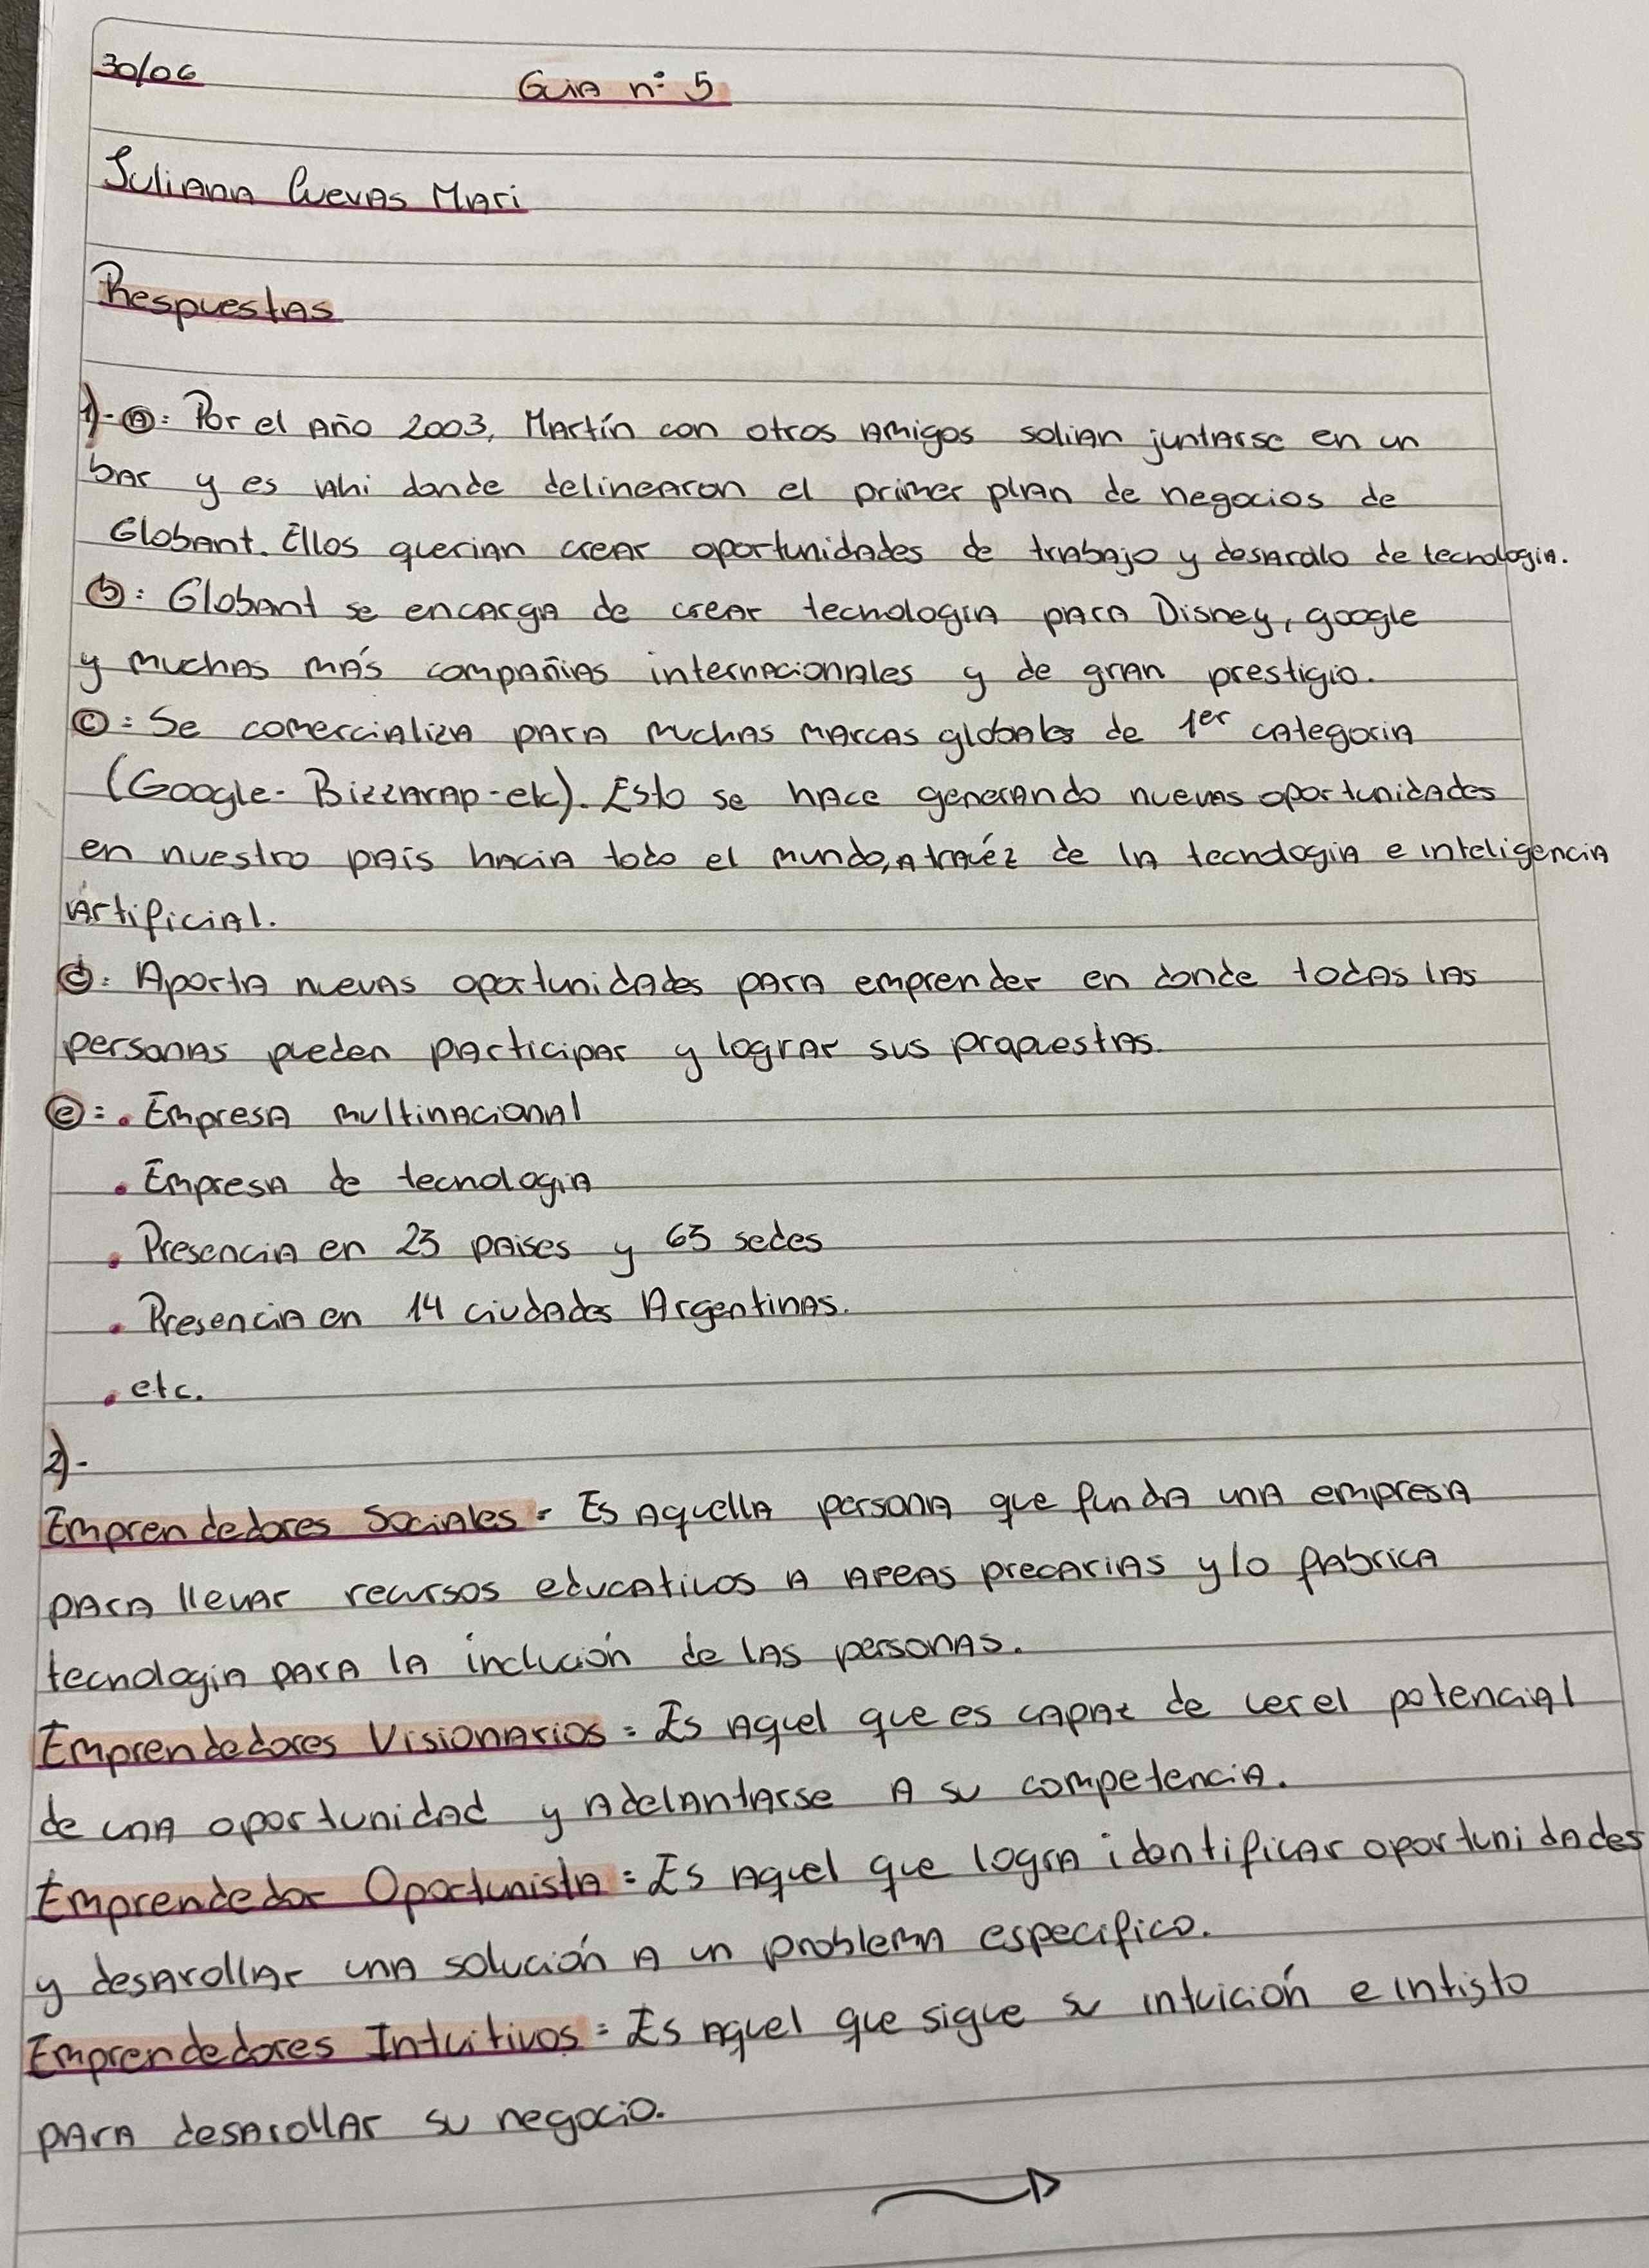 30/06
Guia n° 5
Juliana Cuevas Mari
Respuestas
1)- a: Por el año 2003, Martín con otros amigos solian juntarse en un
bar y es ahi donde delinearon el primer plan de negocios de
Globant. Ellos querian crear oportunidades de trabajo y desarollo de tecnologia.
b: Globant se encarga de crear tecnologia para Disney, google
y muchas más compañias internacionales y de gran prestigio.
c: Se comercializa para muchas marcas globales de 1er categoria
(Google - Bizzarap - etc). Esto se hace generando nuevas oportunidades
en nuestro país hacia todo el mundo, a travéz de la tecnologia e inteligencia
Artificial.
d: Aporta nuevas oportunidades para emprender en donde todas las
personas pueden participar y lograr sus propuestas.
e: . Empresa multinacional
. Empresa de tecnologia
. Presencia en 25 paises y 65 sedes
. Presencia en 14 ciudades Argentinas.
. etc.
2)-
Emprendedores Sociales: Es aquella persona que funda una empresa
para llevar recursos educativos a areas precarias y/o fabrica
tecnologia para la inclución de las personas.
Emprendedores Visionarios: Es aquel que es capaz de ver el potencial
de una oportunidad y adelantarse a su competencia.
Emprendedor Oportunista: Es aquel que logra identificar oportunidades
y desarollar una solución a un problema especifico.
Emprendedores Intuitivos: Es aquel que sigue su intuición e intisto
para desarollar su negocio.